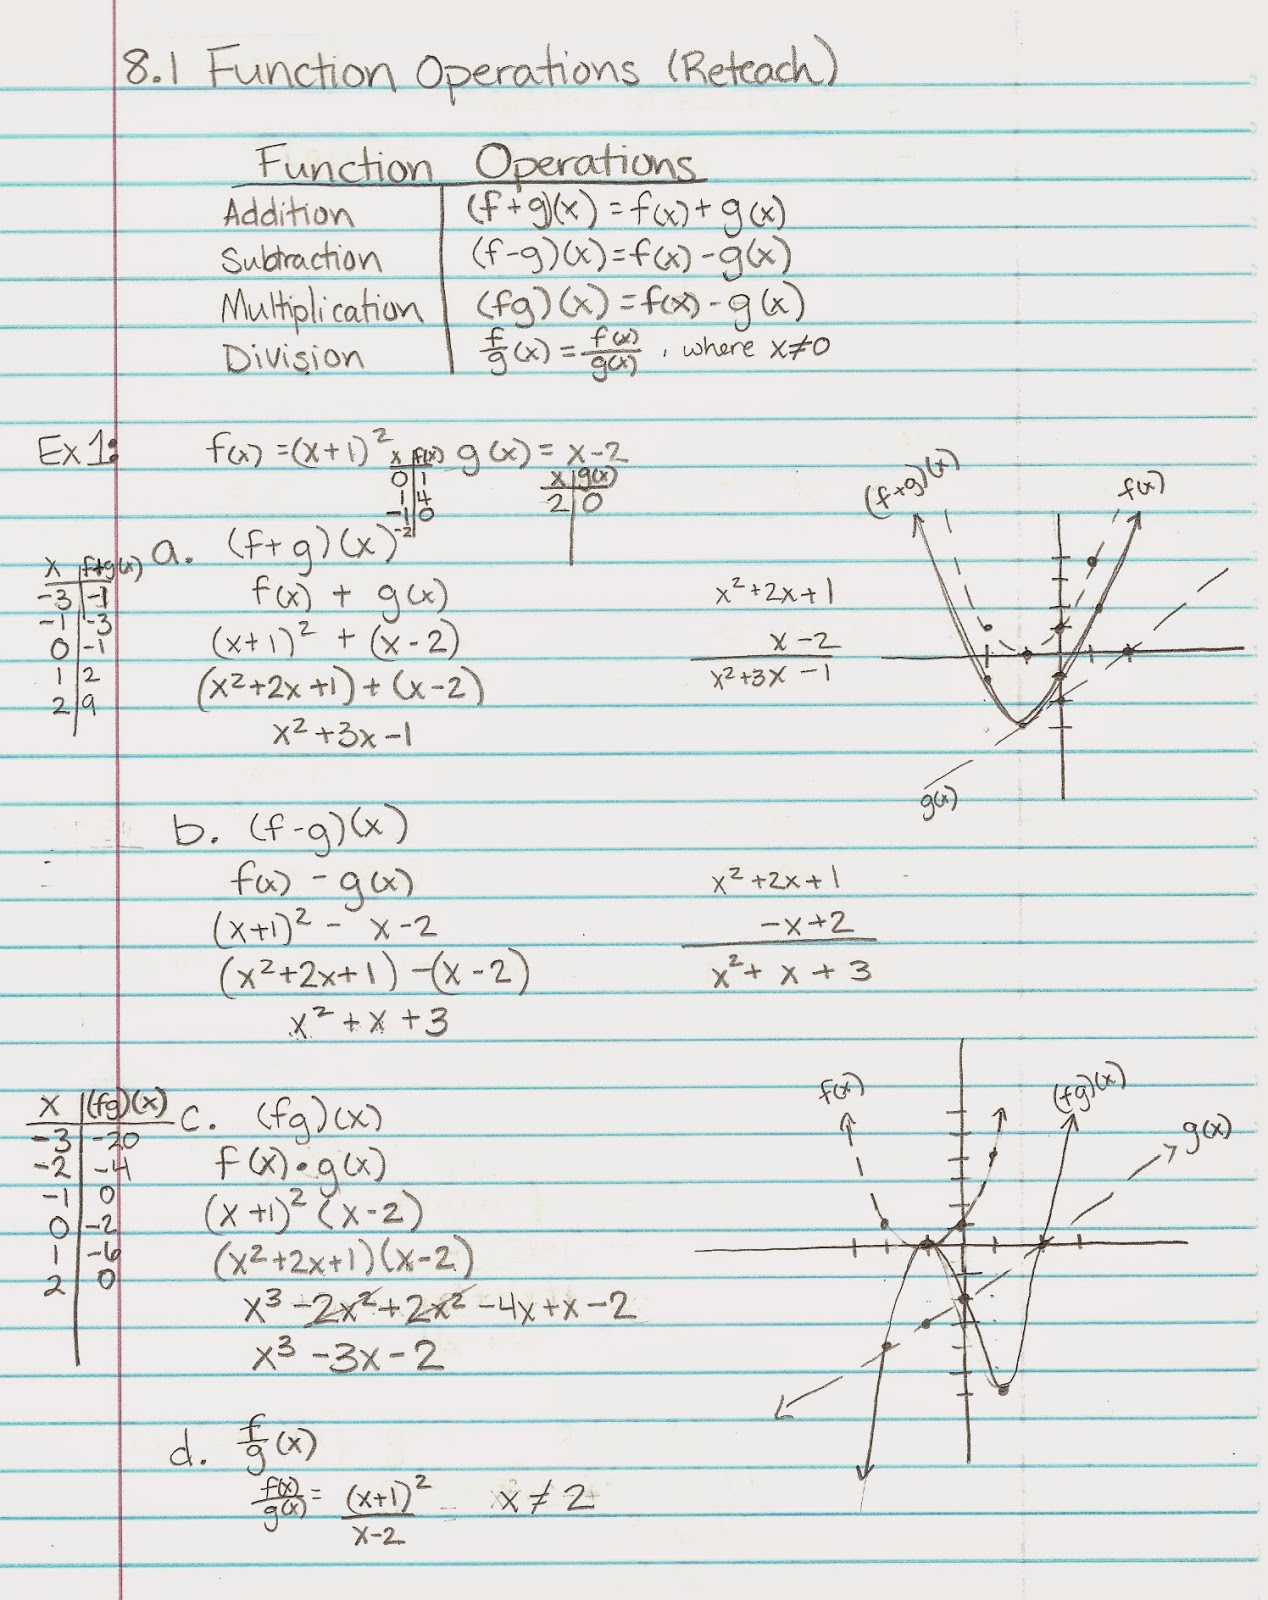 8.1 Function Operations (Reteach)
Function Operations
Addition (f+g)(x) = f(x) + g(x)
Subtraction (f-g)(x) = f(x) - g(x)
Multiplication (fg)(x) = f(x) - g(x)
Division f/g (x) = f(x)/g(x) , where x≠0
Ex 1: f(x) = (x+1)² g(x) = x-2
x | f(x)
0 | 1
1 | 4
-1 | 0
-2
x | g(x)
2 | 0
a. (f+g)(x)
f(x) + g(x)
(x+1)² + (x-2)
(x²+2x+1)+(x-2)
x²+3x-1
x | f+g(x)
-3 | -1
-1 | -3
0 | -1
1 | 2
2 | 9
x²+2x+1
x-2
x²+3x-1
(f+g)(x)
f(x)
g(x)
b. (f-g)(x)
f(x) - g(x)
(x+1)² - x-2
(x²+2x+1) -(x-2)
x²+x+3
x²+2x+1
-x+2
x²+x+3
x | (fg)(x)
-3 | -20
-2 | -4
-1 | 0
0 | -2
1 | -6
2 | 0
c. (fg)(x)
f(x)•g(x)
(x+1)²(x-2)
(x²+2x+1)(x-2)
x³-2x²+2x²-4x+x-2
x³-3x-2
f(x)
(fg)(x)
g(x)
d. f/g (x)
f(x)/g(x) = (x+1)²/x-2 x≠2